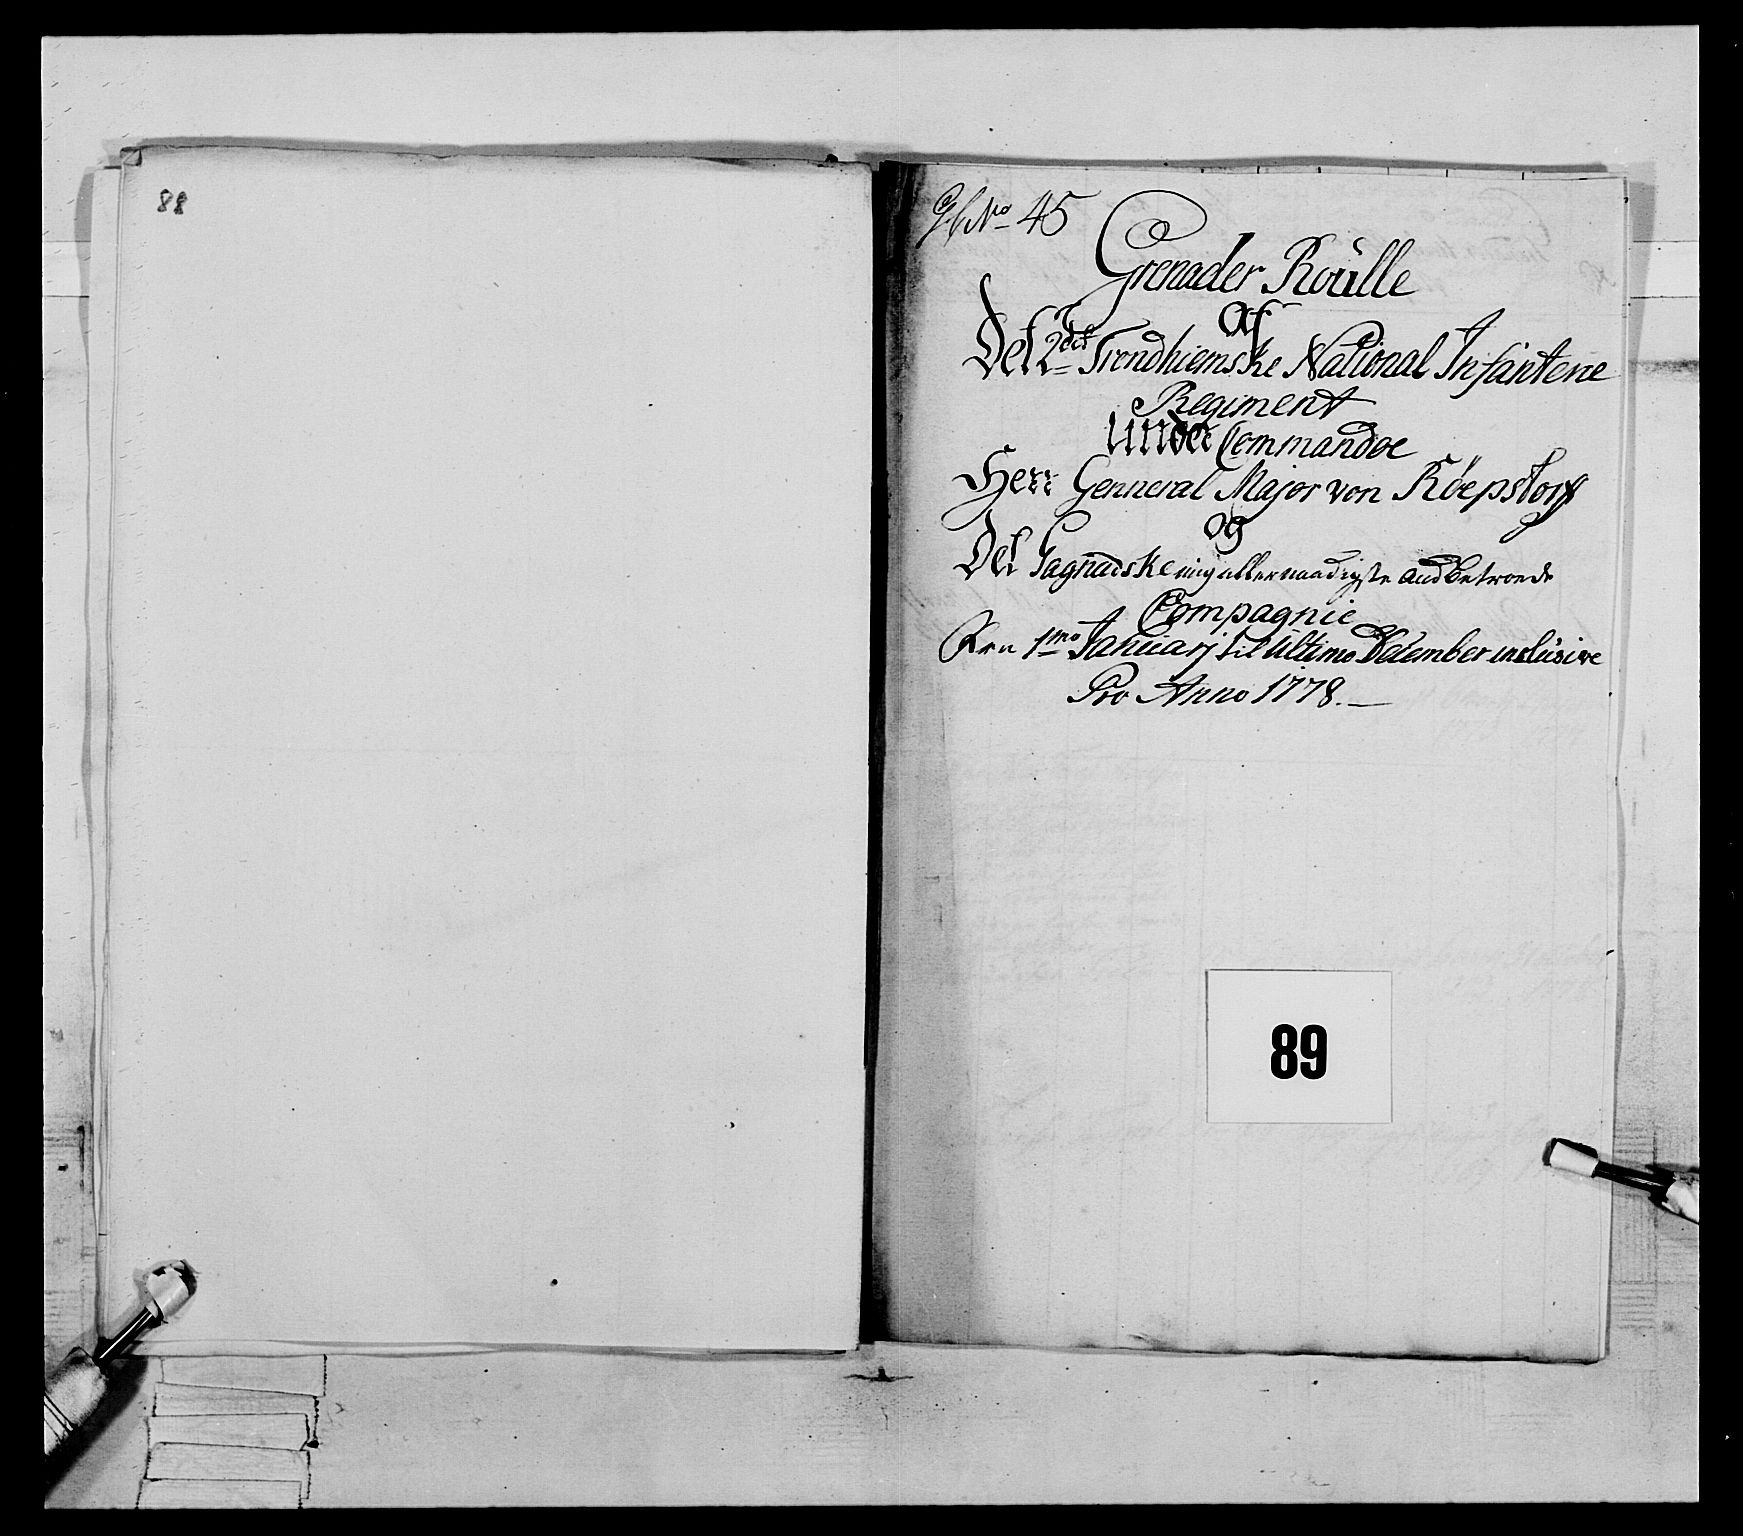 88
No 45
Grenader Roülle
Af
Det 2det Trondhiemske National Infanterie
Regiment
Under Commandoe
Herr Genneral Major von Röepstorff
og
Det mig allernaadigste anbetroede
Compagnie
Fra 1mo Januarj til Ultimo December inclüsive
Pro Anno 1778.
89